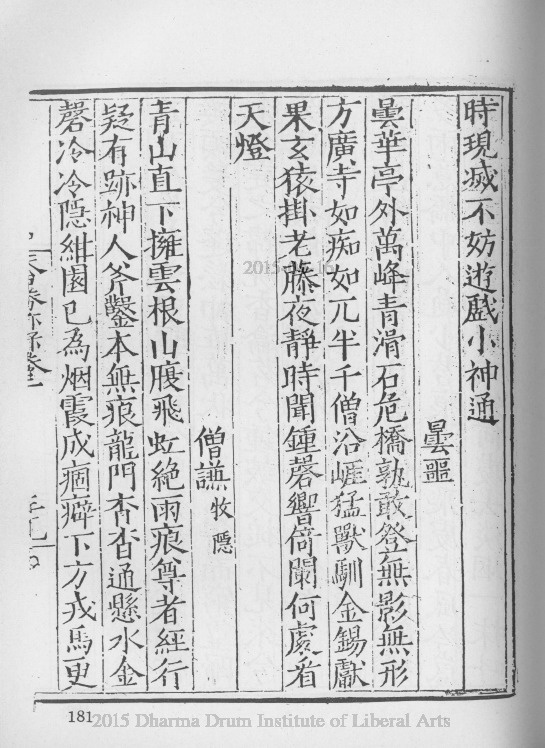 時現滅不妨遊戲小神通
曇噩
曇華亭外萬峰青滑石危橋孰敢登無影無形
方廣寺如痴如兀半千僧沿崕猛獸馴金錫獻
果玄猿掛老藤夜靜時聞鍾磬響倚闌何處看
天燈
僧謙 牧隱
青山直下擁雲根山腹飛虹絶雨痕尊者經行
疑有跡神人斧鑿本無痕龍門杳杳通懸水金
磬冷冷隱紺園已為烟霞成痼癖下方戎馬更
181
2015 Dharma Drum Institute of Liberal Arts